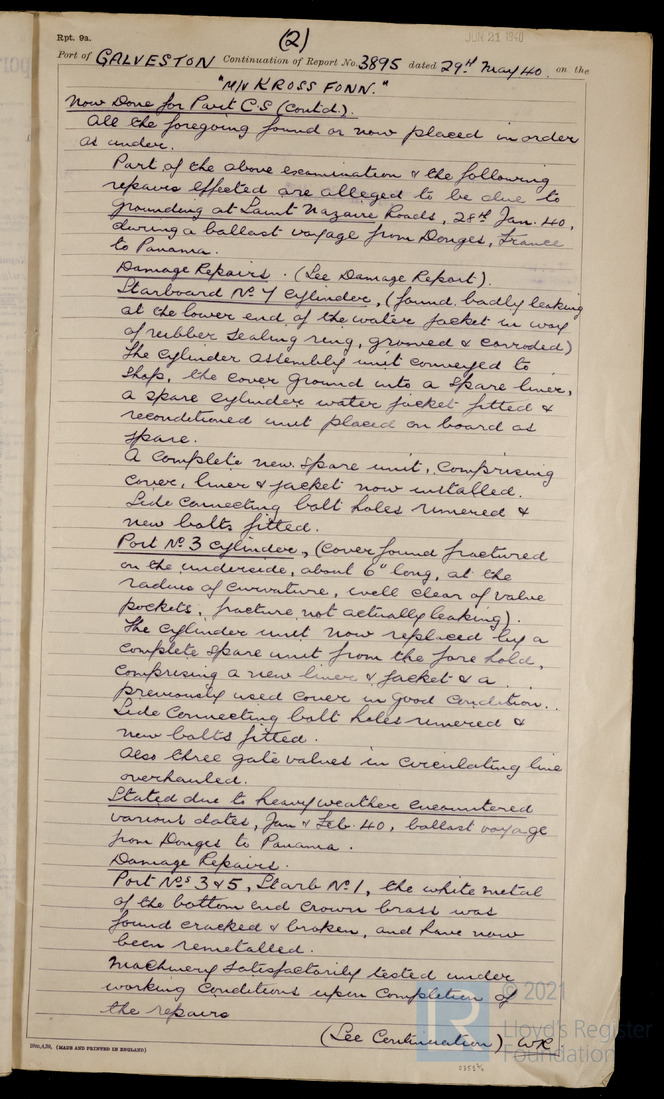 Rpt. 9a.
(2)
JUN 21 1940
Port of GALVESTON Continuation of Report No. 3895 dated 29th May 40. on the
"M/V KROSS FONN."
Now Done for Part C S (Contd.).
All the foregoing found or now placed in order
as under.
Part of the above examination & the following
repairs effected are alleged to be due to
grounding at Saint Nazaire Roads, 28th Jan. 40,
during a ballast voyage from Donges, France
to Panama.
Damage Repairs. (See Damage Report).
Starboard No. 7 cylinder, (found badly leaking
at the lower end of the water jacket in way
of rubber sealing ring, grooved & corroded)
The cylinder assembly unit conveyed to
shop, the cover ground into a spare liner,
a spare cylinder water jacket fitted &
reconditioned unit placed on board as
spare.
A complete new spare unit, comprising
cover, liner & jacket now installed.
Side connecting bolt holes rimered &
new bolts fitted.
Port No. 3 cylinder, (cover found fractured
on the underside, about 6" long, at the
radius of curvature, well clear of valve
pockets, fracture not actually leaking).
The cylinder unit now replaced by a
complete spare unit from the fore hold,
comprising a new liner & jacket & a
previously used cover in good condition.
Side connecting bolt holes rimered &
new bolts fitted.
Also three gate valves in circulating line
overhauled.
Stated due to heavy weather encountered
various dates, Jan & Feb. 40, ballast voyage
from Donges to Panama.
Damage Repairs.
Port Nos 3 & 5, Starb No. 1, the white metal
of the bottom end crown brass was
found cracked & broken, and have now
been remetalled.
Machinery satisfactorily tested under
working conditions upon completion of
the repairs
(See Continuation) WR
(MADE AND PRINTED IN ENGLAND)
© 2021
LR
Lloyd's Register
Foundation